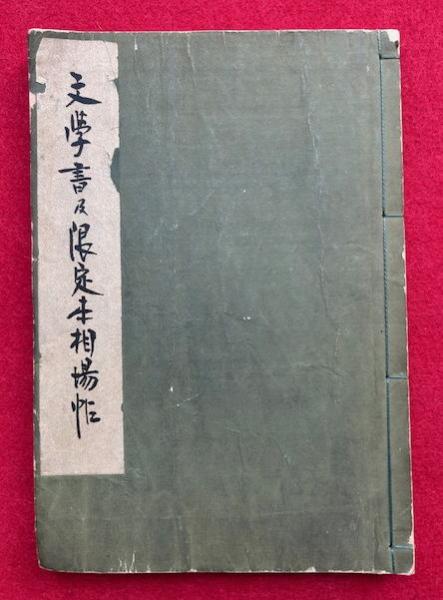 文學書及限定本相場帖